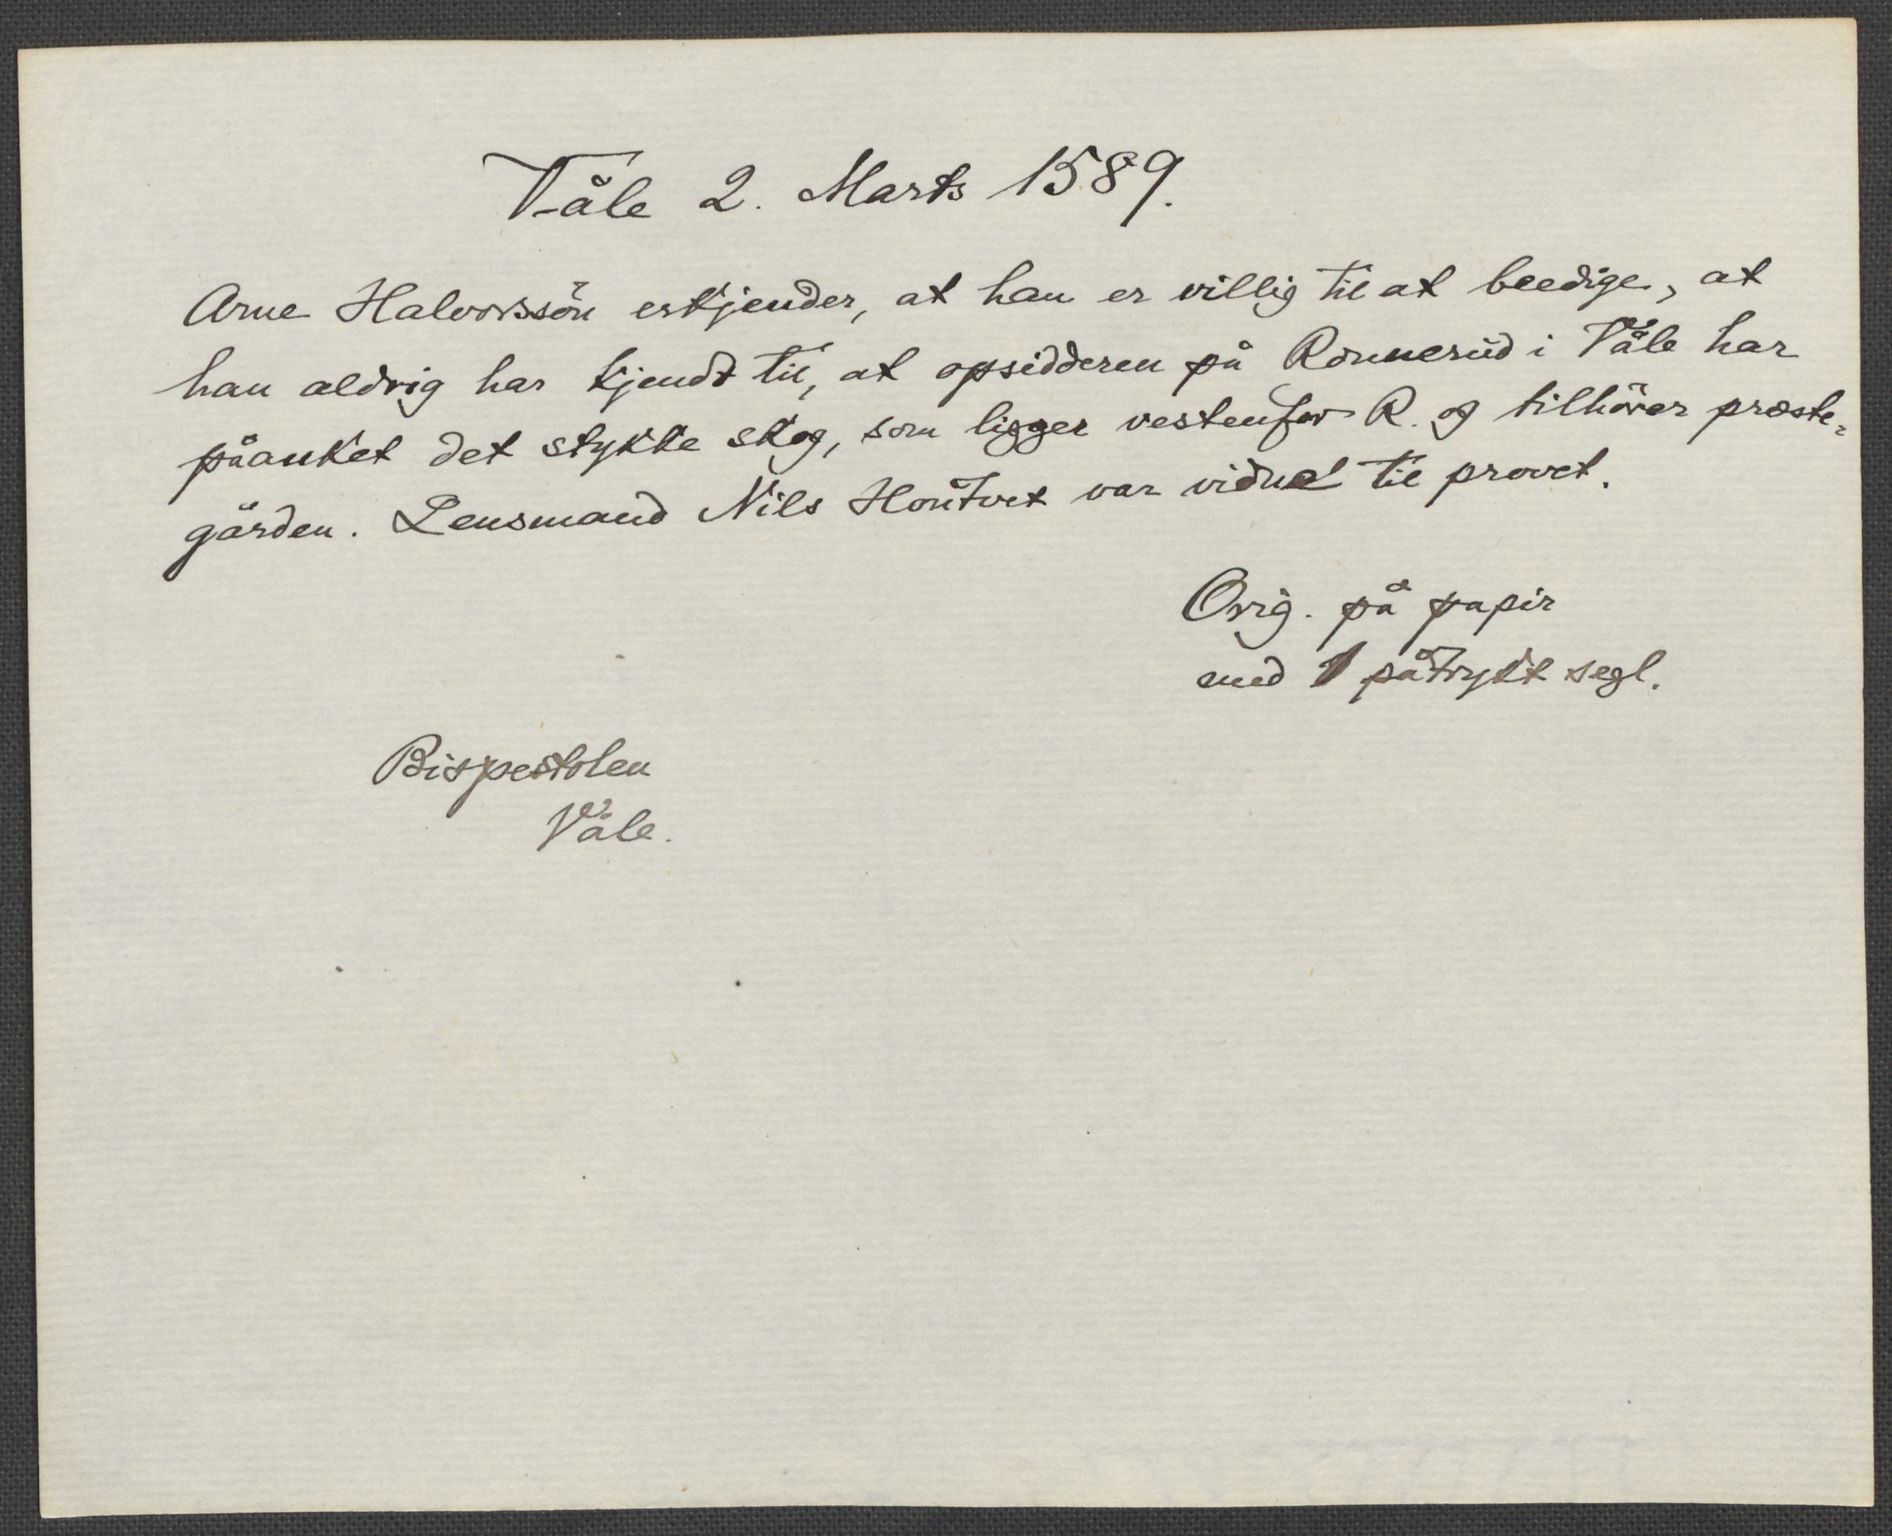 Våle 2. Marts 1589.
Arne Halvorssön erkjender, at han er villig til at beedige, at
han aldrig har kjendt til, at opsidderen på Ronnerud i Våle har
påanket det stykke skog, som ligger vestenfor R. og tilhörer præste-
gården. Lensmand Nils Hontvet var vidne til provet.
Orig. på papir
med 1 påtrykt segl.
Bispestolen
Våle.